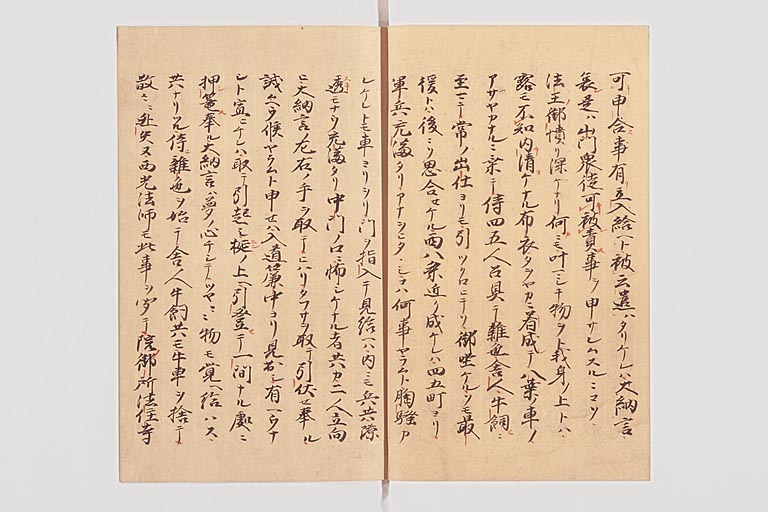 可申合事有立入給ヘト被云遣ハタリケレハ大納言ニ
哀是ハ山門衆徒可被責事ヲ申サレムスルニコソ
法王御憤リ深ケナリ何ニモ叶マシキ物ヲト我身ノ上トハ
露モ不知内清ケナル布衣タヲヤカニ着成テ八葉ノ車ノ
アサヤカナルニ乗テ侍四五人召具テ雑色舎人牛飼ニ
至マテ常ノ出仕ヨリモ引ツクロヒテソ御坐ケルソモ最
後トハ後ニソ思合セケル西八条近ク成ケレハ四五町ヨリ
軍兵充満タリアナヲヒタヽシコハ何事ヤラムト胸騒カ
レケレトモ車ヨリヲリ門ヲ指入テ見給ヘハ内ニモ兵共隙
透モナク充満タリ中門ノ口ニ怖シケナル者共カ二人立向
ヒ大納言ノ左右ノ手ヲ取テ引ハリタフサヲ取テ引伏セ奉ル
誡ムヘウ候ヤラムト申セハ入道簾中ヨリ見出シ有ヘウナ
シト宣ニケレハ取テ引起シ縁ノ上ヘ引登テ一間ナル処ニ
押篭奉ル大納言ハ夢ノ心チシテツヤツヤ物モ覚ヘ給ハス
共ナリツル侍雑色ヲ始テ舎人牛飼共モ牛車ヲ捨テ
散々ニ逃失ヌ西光法師モ此事ヲ聞テ院御所法住寺